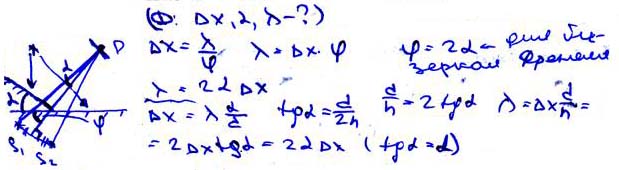 (D: Δx, α, λ - ?)
Δx = λ/φ λ = Δx · φ φ = 2α ← для би-
зеркал Френеля
λ = 2αΔx
Δx = λ d/2 tgα = d/2h d/h = 2tgα λ = Δx d/h =
= 2Δx tgα = 2αΔx (tgα = α)
D
α
α
φ
S1 S2